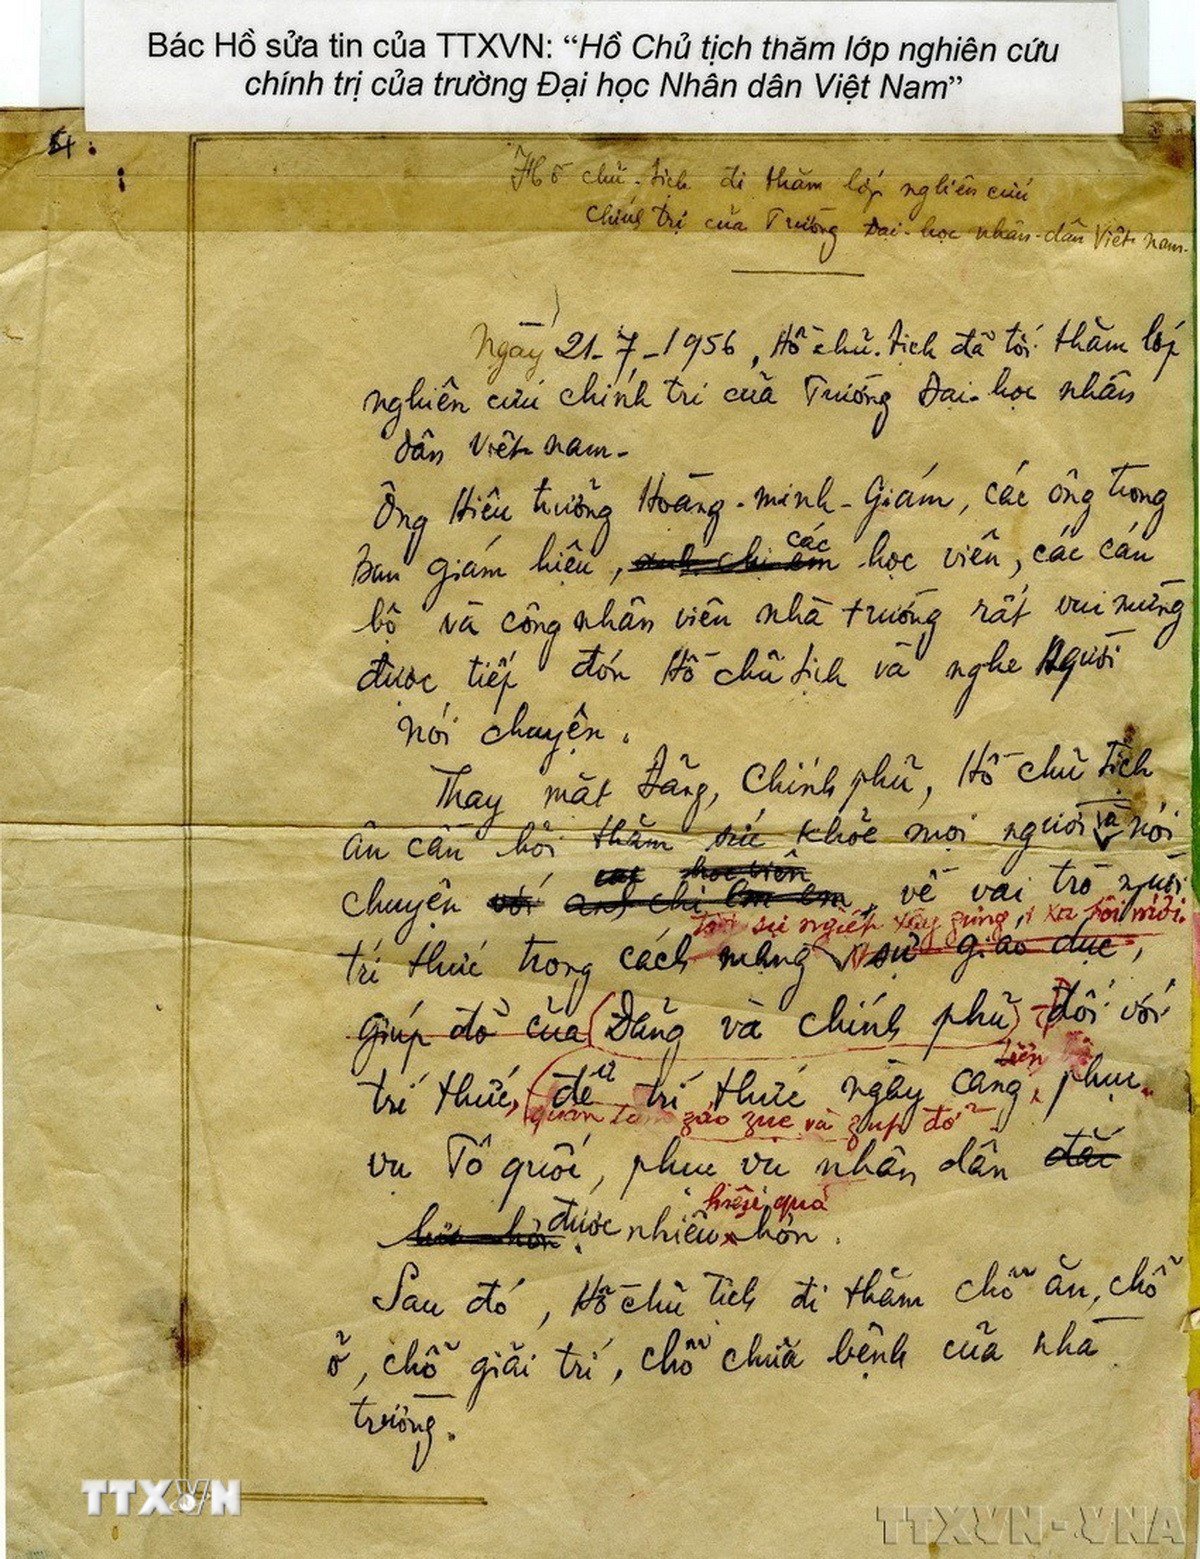 Bác Hồ sửa tin của TTXVN: “Hồ Chủ tịch thăm lớp nghiên cứu
chính trị của trường Đại học Nhân dân Việt Nam”
Hồ chủ-tịch đi thăm lớp nghiên cứu
chính trị của Trường Đại-học nhân-dân Việt-nam-
Ngày 21-7-1956, Hồ chủ-tịch đã tới thăm lớp
nghiên cứu chính trị của Trường Đại-học nhân
dân Việt-nam-
Ông Hiệu trưởng Hoàng-minh-Giám, các ông trong
các
Ban giám hiệu, anh chị em học viên, các cán
bộ và công nhân viên nhà trường rất vui mừng
được tiếp đón Hồ chủ tịch và nghe Người
nói chuyện.
Thay mặt Đảng, Chính phủ, Hồ chủ tịch
ân cần hỏi thăm sức khỏe mọi người và nói
học viên
chuyện với anh chị em, về vai trò người
sự nghiệp xây zựng xã hội mới
trí thức trong cách mạng, sự giáo dục,
giúp đỡ của Đảng và chính phủ đối với
tiến bộ
trí thức, để trí thức ngày càng phục
quan tâm záo zục và zúp đỡ
vụ Tổ quốc, phục vụ nhân dân đắc
hiệu quả
lực hơn được nhiều hơn.
Sau đó, Hồ chủ tịch đi thăm chỗ ăn, chỗ
ở, chỗ giải trí, chỗ chữa bệnh của nhà
trường.
TTXVN
TTXVN-VNA